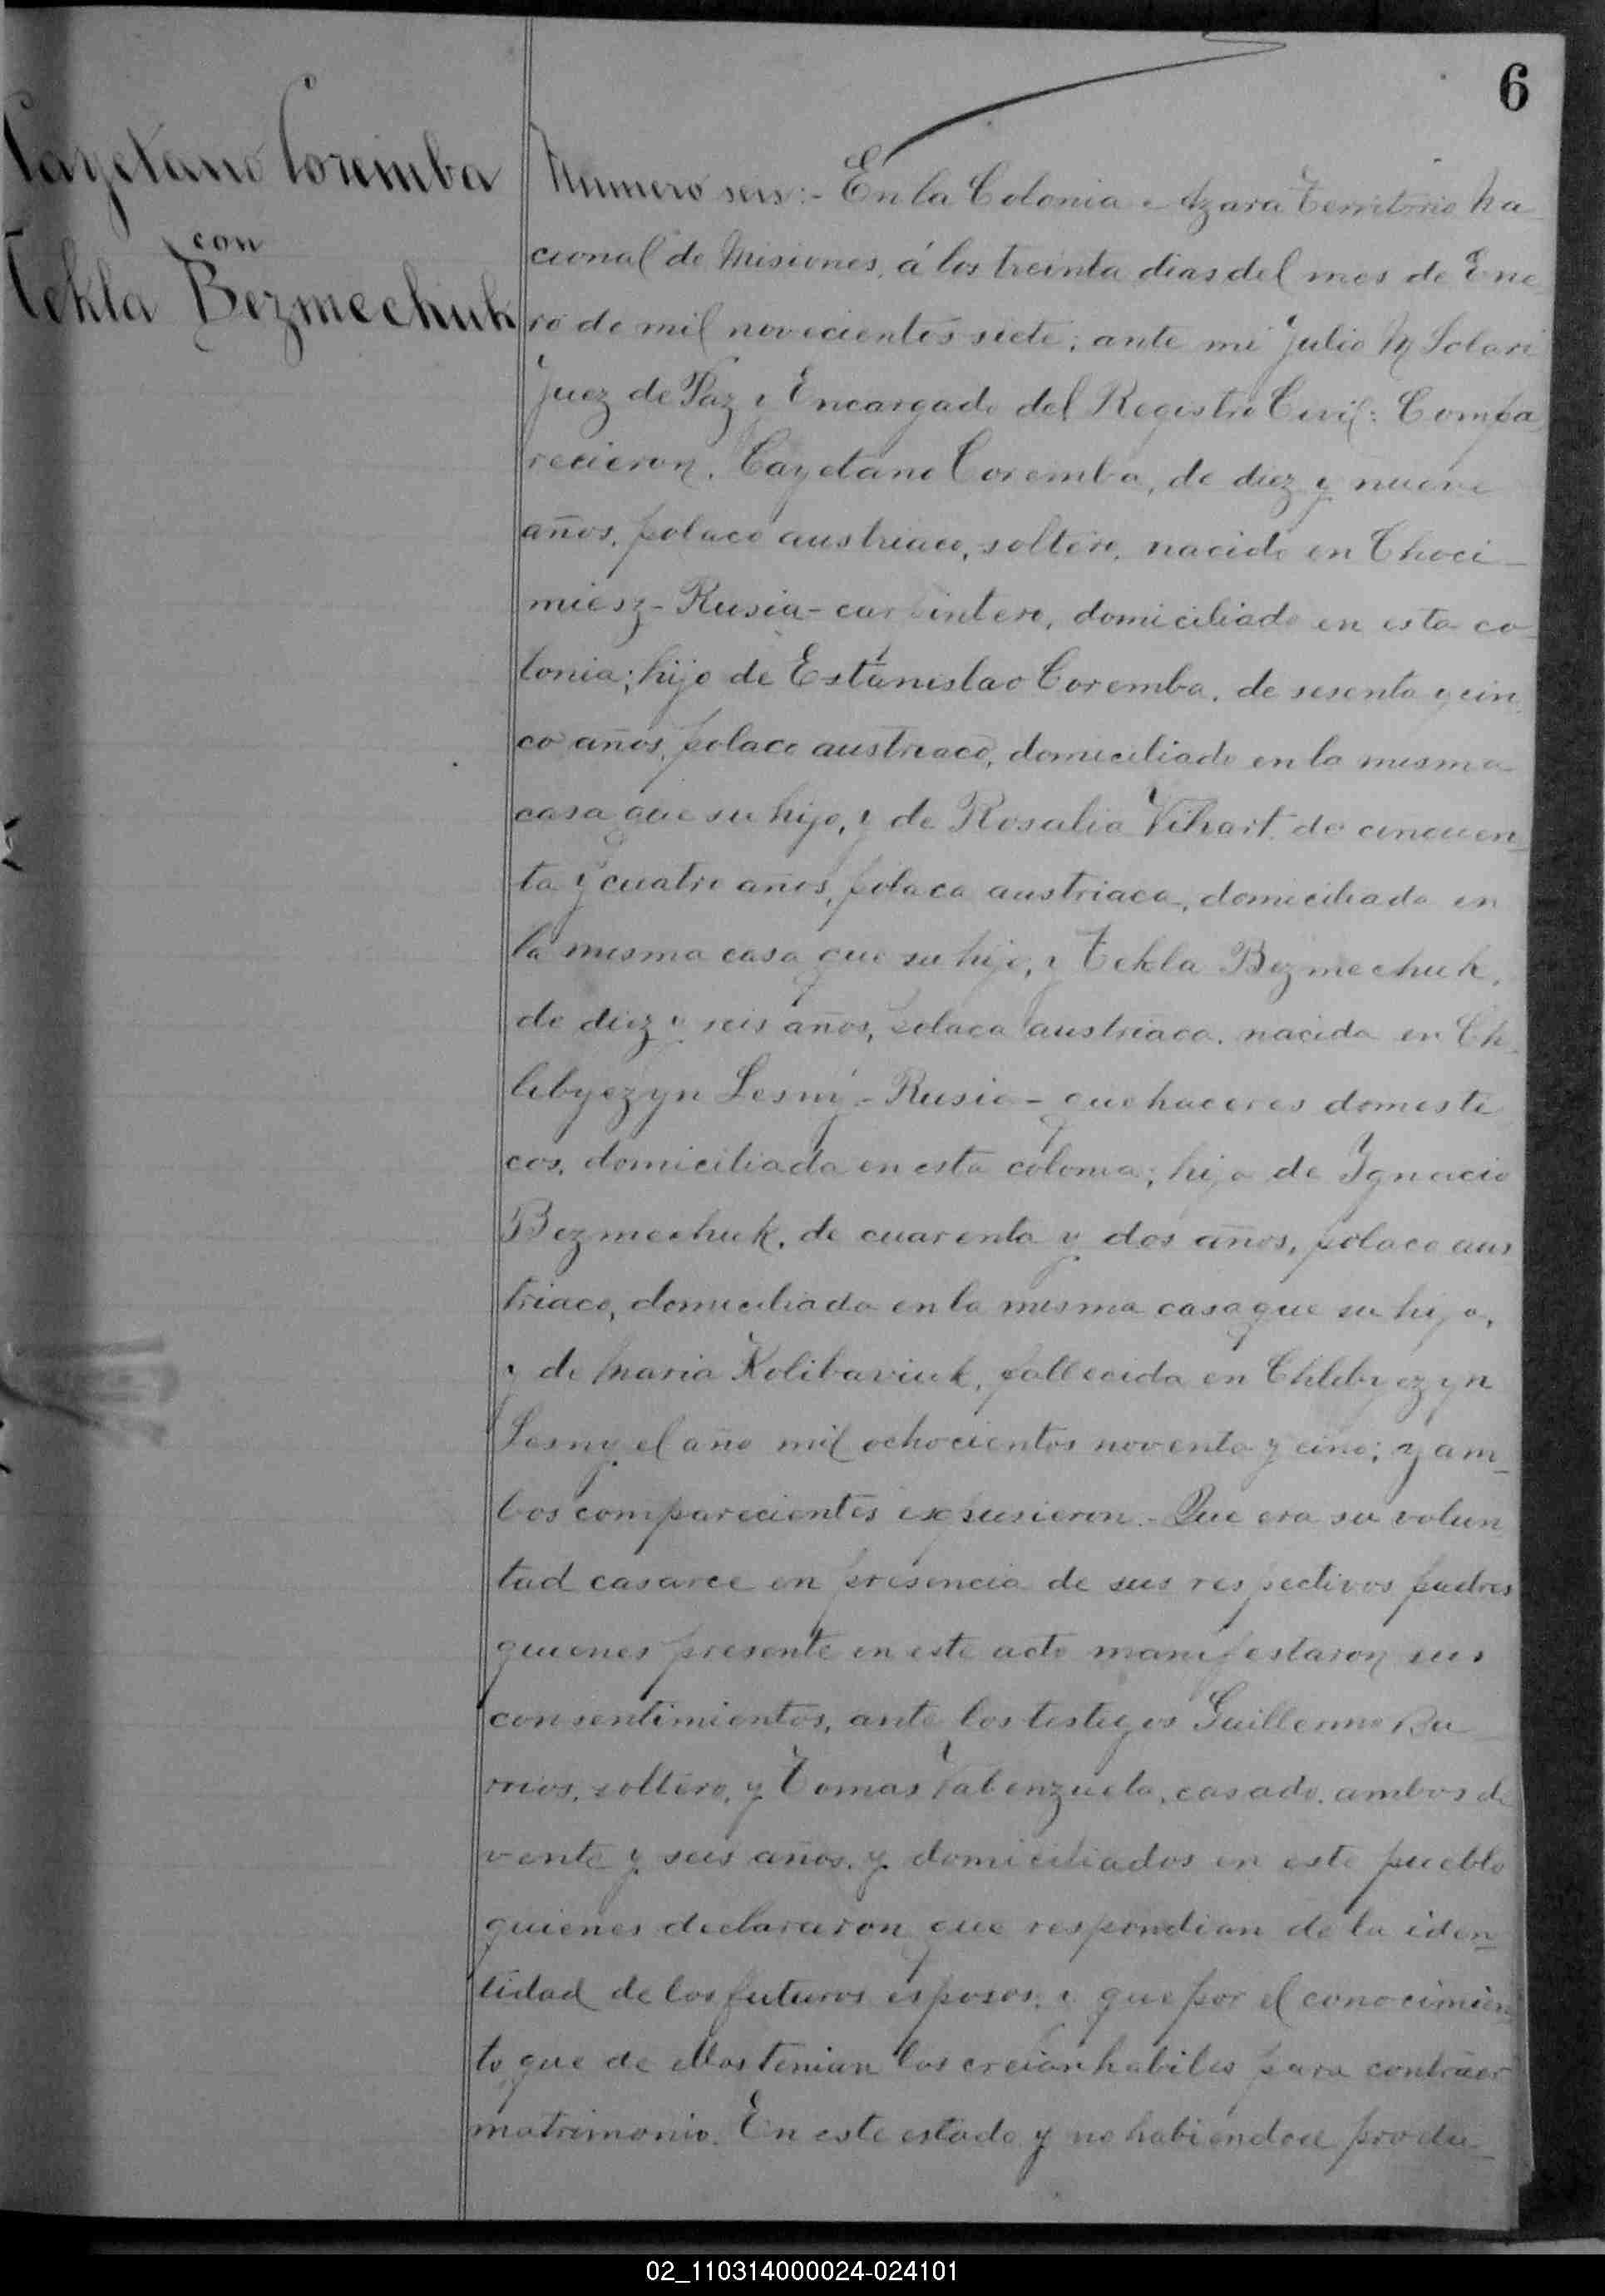 6
Cayetano Coremba
con
Tekla Bezmechuk
Numero seis:- En la Colonia Azara Territorio Na
cional de Misiones, á los treinta dias del mes de Ene
ro de mil novecientos siete; ante mi Julio M Solari
Juez de Paz y Encargado del Registro Civil: Compa
recieron, Cayetano Coremba, de diez y nueve
años, polaco austriaco, soltero, nacido en Choci
miesz - Rusia - carpintero, domiciliado en esta co
lonia; hijo de Estanislao Coremba, de sesenta y cin
co años, polaco austriaco, domiciliado en la misma
casa que su hijo, y de Rosalia Vihart, de cincuen
ta y cuatro años, polaca austriaca, domiciliada en
la misma casa que su hijo, y Tekla Bezmechuk,
de diez y seis años, polaca austriaca, nacida en Ch
lebyezyn Lesny - Rusia - quehaceres domesti
cos, domiciliada en esta colonia; hija de Ignacio
Bezmechuk, de cuarenta y dos años, polaco aus
triaco, domiciliado en la misma casa que su hija,
y de Maria Kolibaviuk, fallecida en Chlebyezyn
Lesny el año mil ochocientos noventa y cinc; y am_
bos comparecientes expusieron.- Que era su volun
tad casarce en presencia de sus respectivos padres
quienes presente en este acto manifestaron sus
consentimientos, ante los testigos Guillermo Ba
rrios, soltero, y Tomas Valenzuela, casado, ambos de
vente y seis años, y domiciliados en este pueblo
quienes declararon que respondian de la iden_
tidad de los futuros esposos; y que por el conocimien
to que de ellos tenian los creian habiles para contraer
matrimonio. En este estado y no habiendose produ_
02_110314000024-024101